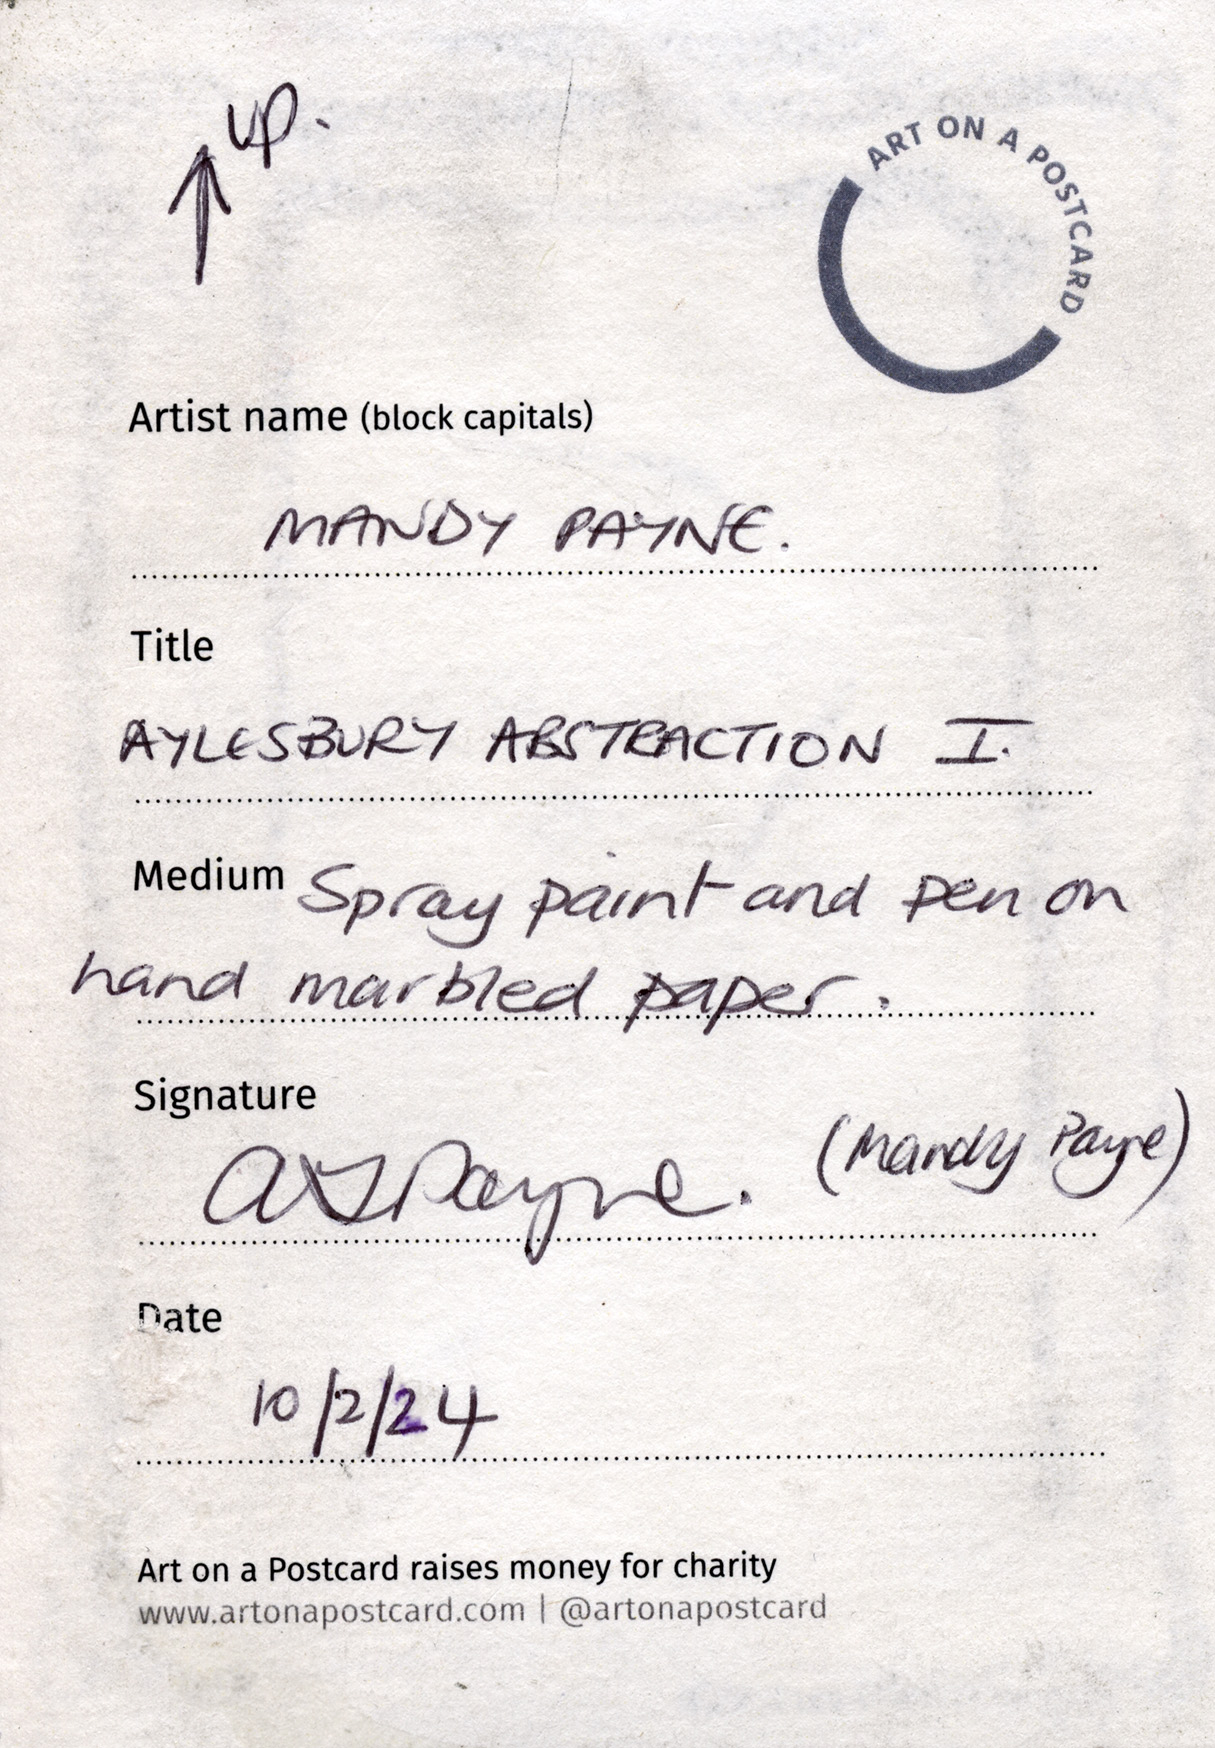 ↑ up.
ART ON A POSTCARD
Artist name (block capitals)
MANDY PAYNE.
Title
AYLESBURY ABSTRACTION I.
Medium Spray paint and pen on
hand marbled paper.
Signature
(Mandy Payne)
Payne.
Date
10/2/24
Art on a Postcard raises money for charity
www.artonapostcard.com | @artonapostcard